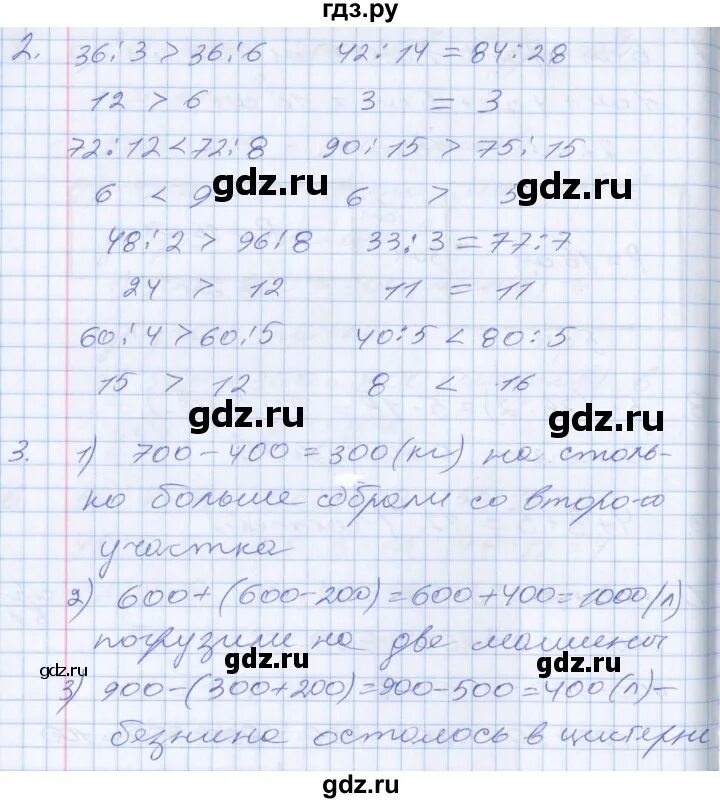 гдз.ру
2. 36:3 > 36:6 42:14 = 84:28
12 > 6 3 = 3
72:12 < 72:8 90:15 > 75:15
6 < 9 6 >
gdz.ru gdz.ru
48:2 > 96:8 33:3 = 77:7
24 > 12 11 = 11
60:4 > 60:5 40:5 < 80:5
15 > 12 8 < 16
gdz.ru gdz.ru
3. 1) 700 - 400 = 300 (кг) на столь-
ко больше собрали со второго
участка
2) 600 + (600 - 200) = 600 + 400 = 1000 (л)
погрузили на две машины
gdz.ru gdz.ru gdz.ru
3) 900 - (300 + 200) = 900 - 500 = 400 (л) -
бензина осталось в цистерне
gdz.ru